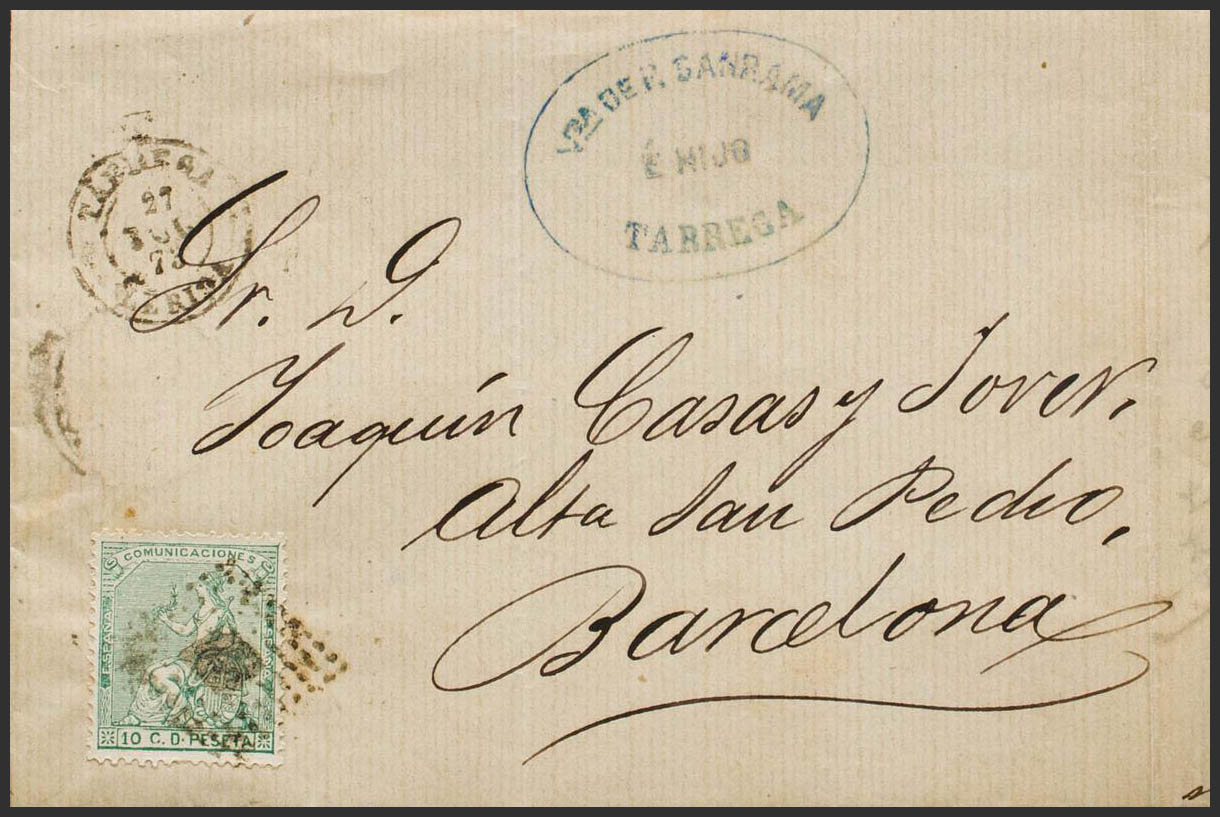 Vda DE F. SANRAMA
É HIJO
TARREGA
TARREGA
27
JUL
73
LERIDA
Sr. D.
Joaquín Casas y Jover.
Alta San Pedro,
Barcelona
COMUNICACIONES
ESPAÑA
10 C. D. PESETA